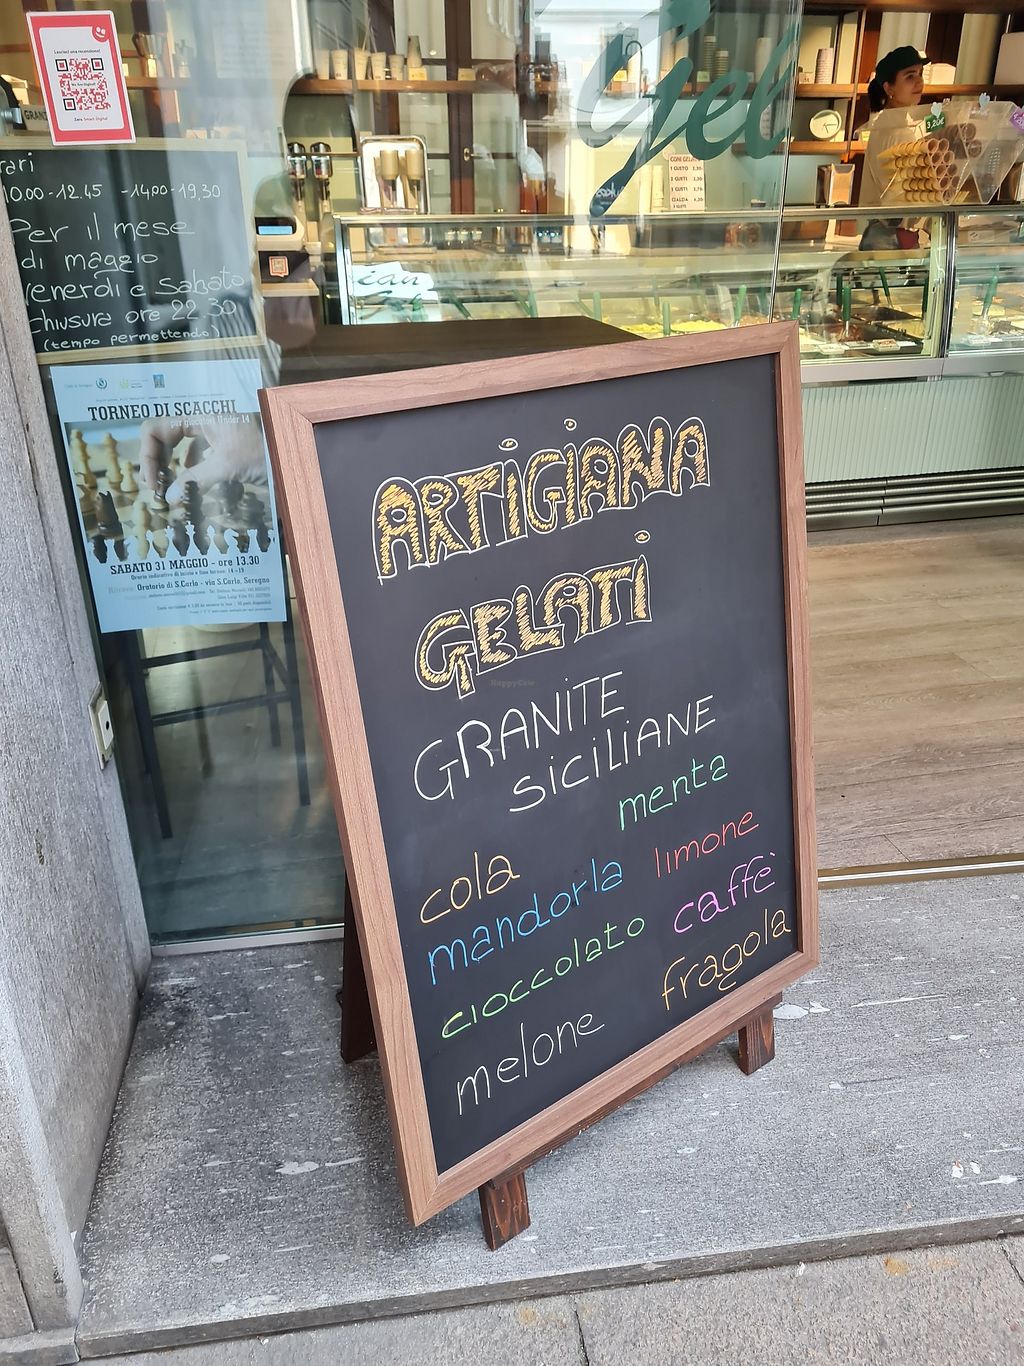 Lasciaci una recensione!
Zero Smart Digital
rari
10.00-12.45 -14.00-19,30
Per il mese
di maggio
Venerdì e Sabato
chiusura ore 22 30
(tempo permettendo)
TORNEO DI SCACCHI
per giocatori Under 14
SABATO 31 MAGGIO - ore 13.30
Ritrovo: Oratorio di S.Carlo - via S.Carlo, Seregno
gel
CONI GELATO
1 GUSTO
2 GUSTI
3 GUSTI
CIALDA
ARTIGIANA
GELATI
GRANITE
SICILIANE
menta
cola
limone
mandorla
caffè
cioccolato
fragola
melone
HappyCow